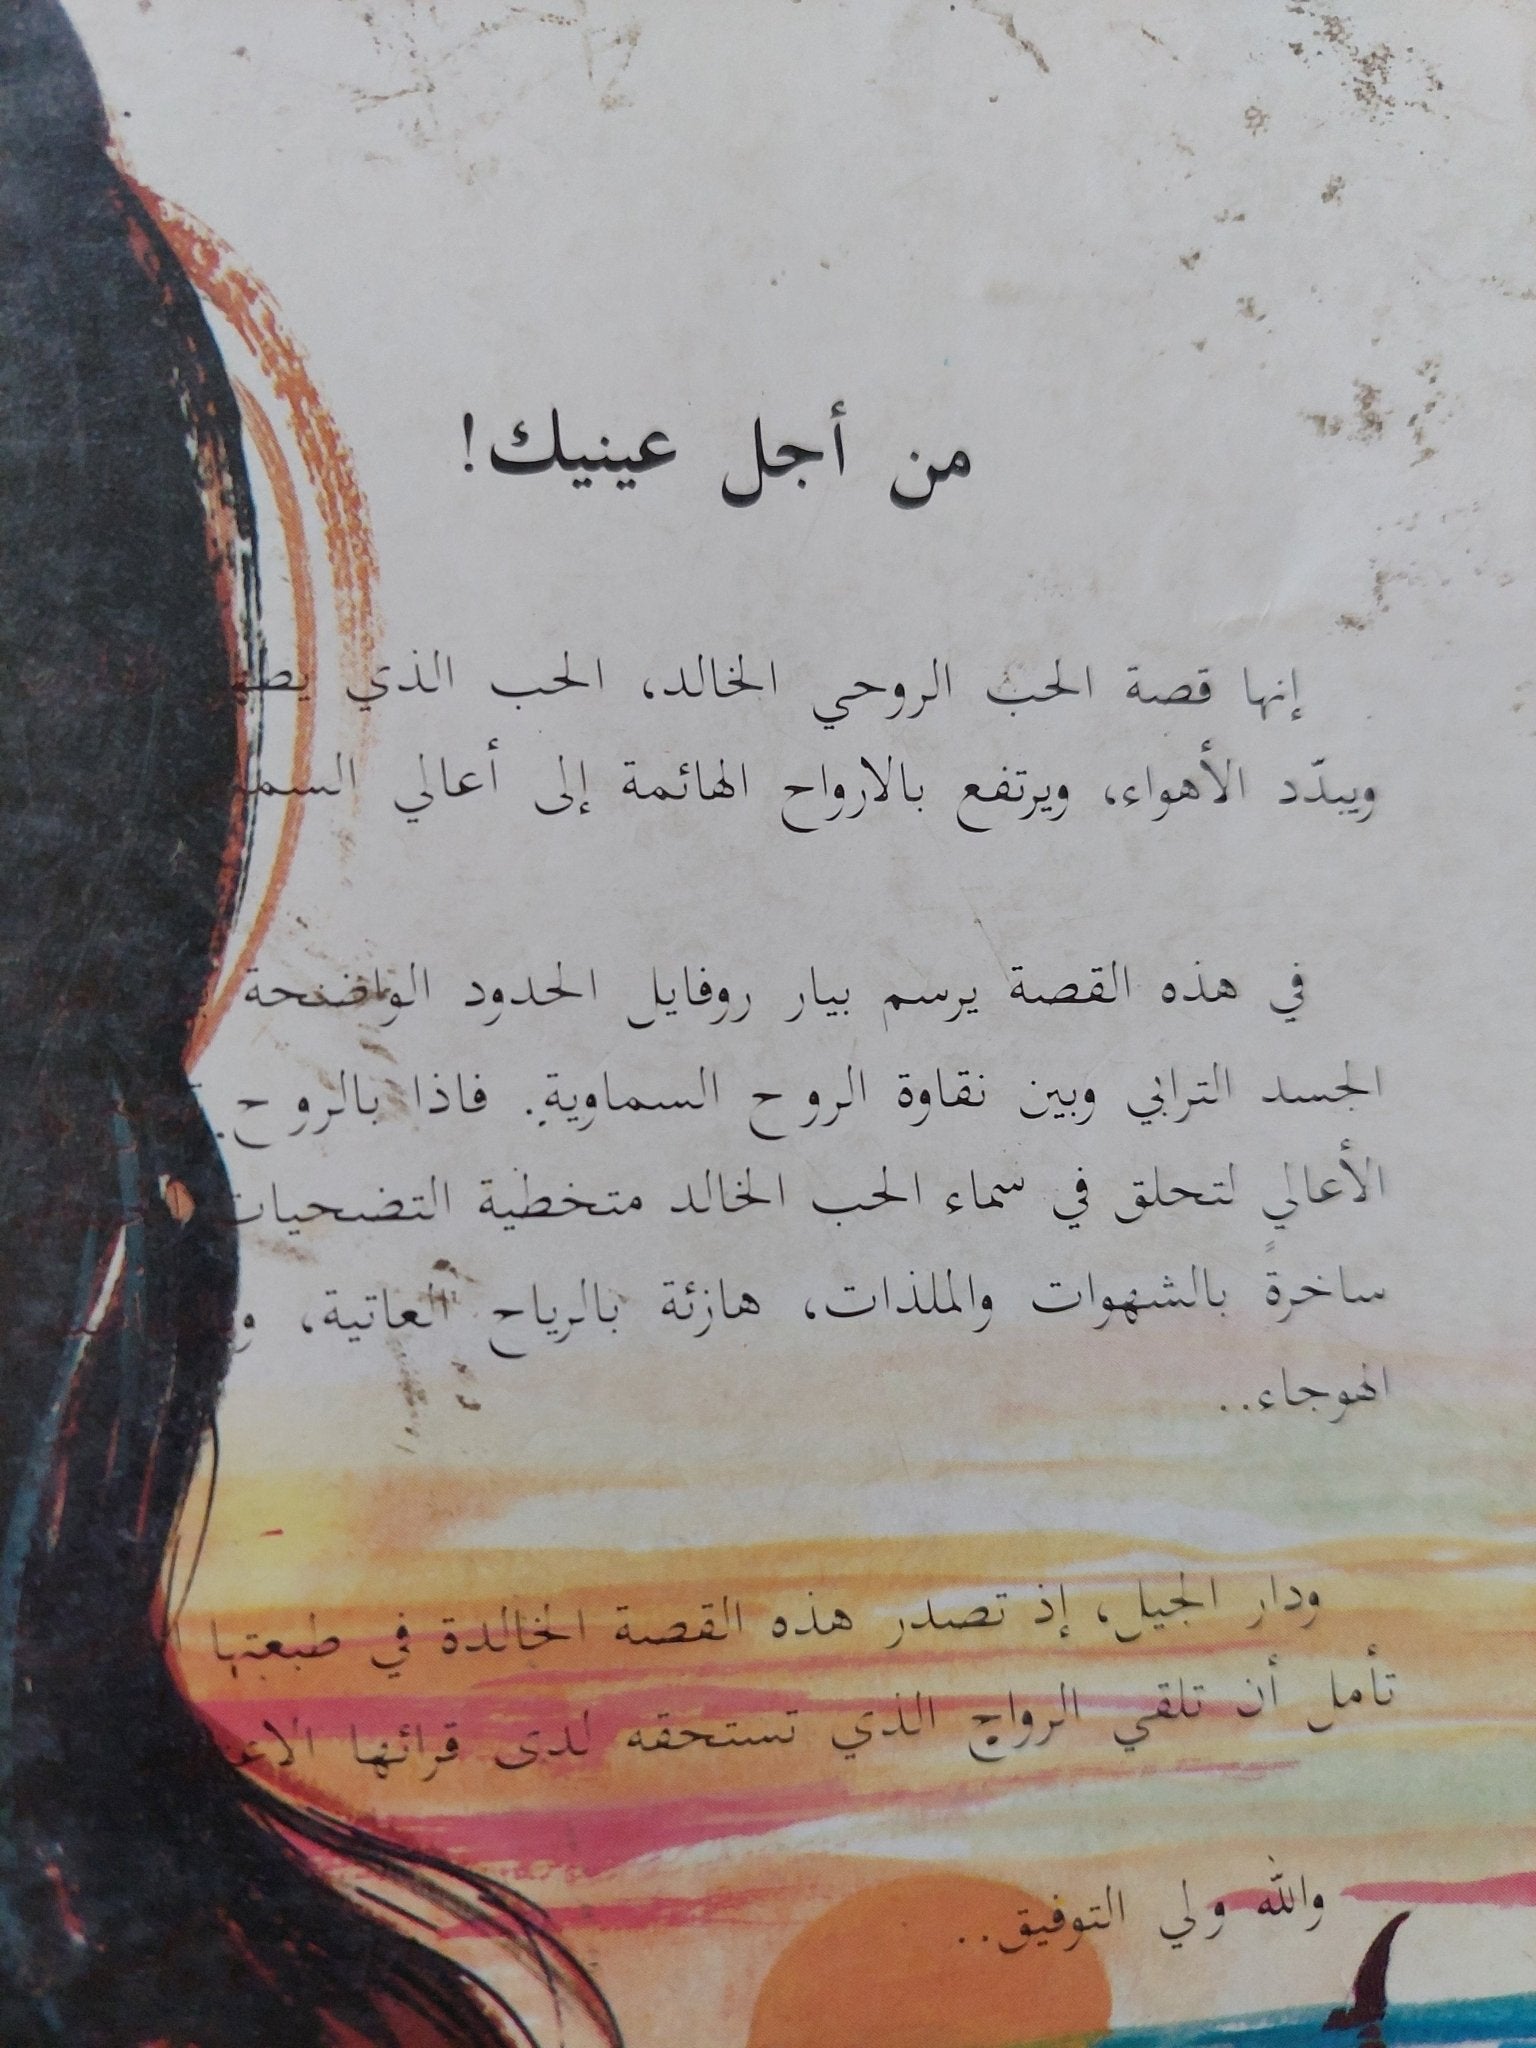 من أجل عينيك!
إنها قصة الحب الروحي الخالد، الحب الذي
ويبدّد الأهواء، ويرتفع بالارواح الهائمة إلى أعالي
في هذه القصة يرسم بيار روفايل الحدود الواضحة
الجسد الترابي وبين نقاوة الروح السماوية. فاذا بالروح
الأعالي لتحلق في سماء الحب الخالد متخطية التضحيات
ساخرةً بالشهوات والملذات، هازئة بالرياح العاتية،
الهوجاء..
ودار الجيل، إذ تصدر هذه القصة الخالدة في طبعتها
تأمل أن تلقى الرواج الذي تستحقه لدى قرائها
والله ولي التوفيق..